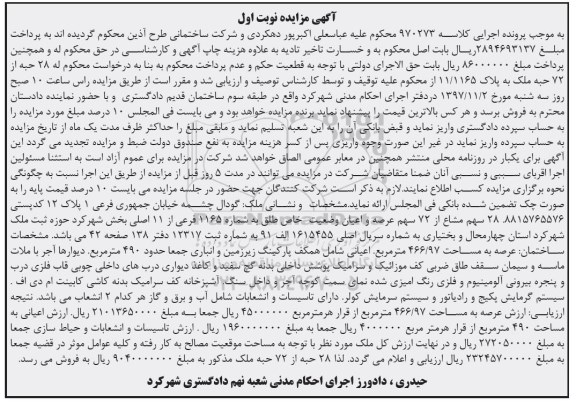 آگهی مزایده نوبت اول
به موجب پرونده اجرایی کلاسه ۹۷۰۲۷۳ محکوم علیه عباسعلی اکبرپور دهکردی و شرکت ساختمانی طرح آذین محکوم گردیده اند به پرداخت
مبلغ ۲۸۹۴۶۹۳۱۳۷ریال بابت اصل محکوم به و خسارت تاخیر تادیه به علاوه هزینه چاپ آگهی و کارشناسی در حق محکوم له و همچنین
پرداخت مبلغ ۸۶۰۰۰۰۰۰ ریال بابت حق الاجرای دولتی با توجه به قطعیت حکم و عدم پرداخت محکوم به بنا به درخواست محکوم له ۲۸ حبه از
۷۲ حبه ملک به پلاک ۱۱/۱۱۶۵ از محکوم علیه توقیف و توسط کارشناس توصیف و ارزیابی شد و مقرر است از طریق مزایده راس ساعت ۱۰ صبح
روز سه شنبه مورخ ۱۳۹۷/۱۱/۲ دردفتر اجرای احکام مدنی شهرکرد واقع در طبقه سوم ساختمان قدیم دادگستری و با حضور نماینده دادستان
محترم به فروش برسد و هر کس بالاترین قیمت را پیشنهاد نماید برنده مزایده خواهد بود و می بایست فی المجلس ۱۰ درصد مبلغ مورد مزایده را
به حساب سپرده دادگستری واریز نماید و قبض بانکی آن را به این شعبه تسلیم نماید و مابقی مبلغ را حداکثر ظرف مدت یک ماه از تاریخ مزایده
به حساب سپرده واریز نماید در غیر این صورت وجوه واریزی پس از کسر هزینه مزایده به نفع صندوق دولت ضبط و مزایده تجدید می گردد این
آگهی برای یکبار در روزنامه محلی منتشر همچنین در معابر عمومی الصاق خواهد شد شرکت در مزایده برای عموم آزاد است به استثنا مسئولین
اجرا اقربای سببی و نسبی آنان ضمنا متقاضیان شرکت در مزایده می توانند در مدت ۵ روز قبل از مزایده از طریق این اجرا نسبت به چگونگی
نحوه برگزاری مزایده کسب اطلاع نمایند.لازم به ذکر است شرکت کنندگان جهت حضور در جلسه مزایده می بایست ۱۰ درصد قیمت پایه را به
صورت چک تضمین شده بانکی فی المجلس ارائه نماید.مشخصات و نشانی ملک: گودال چشمه خیابان جمهوری فرعی ۱ پلاک ۱۲ کدپستی
۸۸۱۵۷۶۵۵۷۶ ۲۸ سهم مشاع از ۷۲ سهم عرصه و اعیان وضعیت خاص طلق به شماره ۱۱۶۵ فرعی از ۱۱ اصلی بخش شهرکرد حوزه ثبت ملک
شهرکرد استان چهارمحال و بختیاری به شماره سریال اصلی ۱۶۱۵۴۵۵ الف ۹۱ به شماره ثبت ۱۲۳۱۷ دفتر ۱۳۸ صفحه ۴۲ می باشد. مشخصات
ساختمان: عرصه به مساحت ۴۶۶/۹۷ مترمربع. اعیانی شامل همکف پارکینگ زیرزمین و انباری جمعا حدود ۴۹۰ مترمربع. دیوارها آجر با ملات
ماسه و سیمان سقف طاق ضربی کف موزائیک و سرامیک پوشش داخلی بدنه گچ سفید و کاغذ دیواری درب های داخلی چوبی قاب فلزی درب
و پنجره بیرونی آلومینیوم و فلزی رنگ امیزی شده نمای سمت کوچه آجر و داخل سنگ. آشپزخانه کف سرامیک بدنه کاشی کابینت ام دی اف .
سیستم گرمایش پکیج و رادیاتور و سیستم سرمایش کولر. دارای تاسیسات و انشعابات شامل آب و برق و گاز هر کدام ۲ انشعاب می باشد. نتیجه
ارزیابی: ارزش عرصه به مساحت ۴۶۶/۹۷ مترمربع از قرار هرمترمربع ۴۵۰۰۰۰۰۰ ریال جمعا به مبلغ ۲۱۰۱۳۶۵۰۰۰۰ ریال. ارزش اعیانی به
مساحت ۴۹۰ مترمربع از قرار هرمتر مربع ۴۰۰۰۰۰۰ ریال جمعا به مبلغ ۱۹۶۰۰۰۰۰۰۰ ریال . ارزش تاسیسات و انشعابات و حیاط سازی جمعا
به مبلغ ۲۷۲۰۵۰۰۰۰ ریال و در نهایت ارزش کل ملک مورد نظر با توجه به مساحت موقعیت مصالح به کار رفته و کلیه عوامل موثر در قضیه جمعا
به مبلغ ۲۳۲۴۵۷۰۰۰۰۰ ریال ارزیابی و اعلام می گردد. لذا ۲۸ حبه از ۷۲ حبه ملک مذکور به مبلغ ۹۰۴۰۰۰۰۰۰۰ ریال به فروش می رسد.
حیدری ، دادورز اجرای احکام مدنی شعبه نهم دادگستری شهرکرد